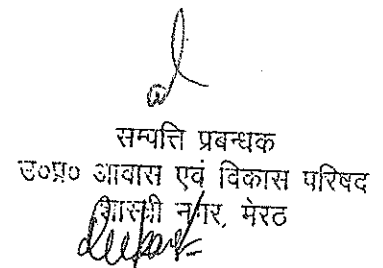 सम्पत्ति प्रबन्धक
उ०प्र० आवास एवं विकास परिषद
शास्त्री नगर, मेरठ